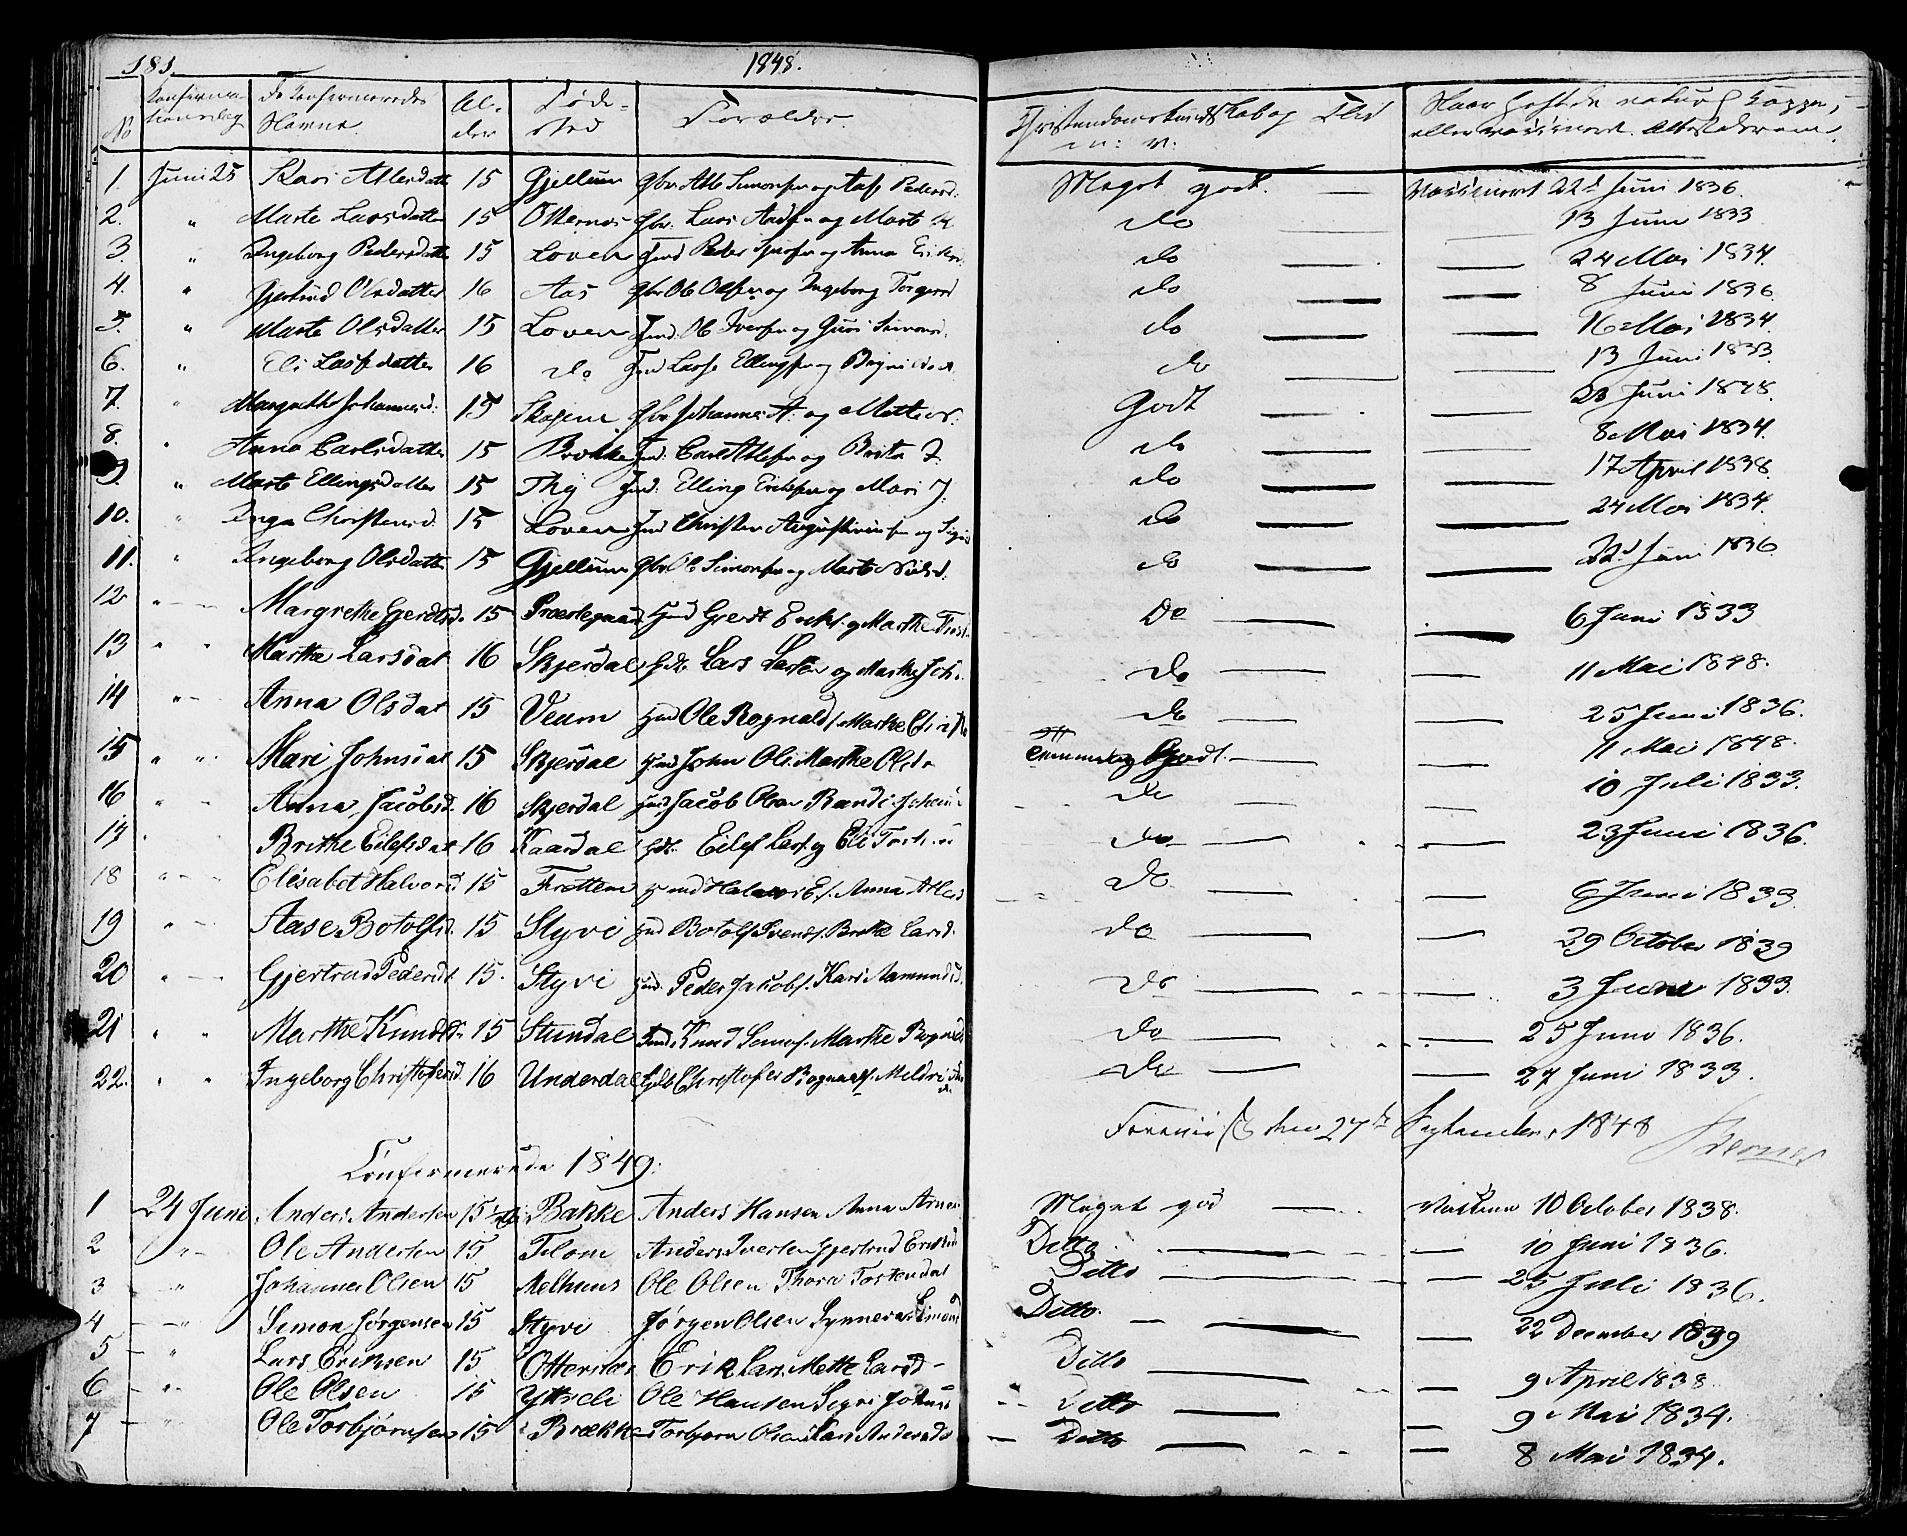 181. 1848.
No Konfirmationsdag De Konfirmeredes Navne Alder Fødested Forældre. Christendomskundskab og Flid m: v: Naar havt de naturl. Kopper, eller vaccineret.
1. Juni 25 Kari Atlesdatt 15 Gjellum Gbr. Atle Simonsen og Pedersd: Meget godt. — Vaccineret 22d Juni 1836.
2. " Marte Larsdatter 15 Otternæs Gbr. Lars og Marte do — — 13 Juni 1833
3. " Ingeborg Pedersdatt 15 Loven Hmd Peder og Anna do — — 24 Mai 1834.
4. " Gjertrud Olsdatter 16 Aas Gbr. Ole Olsen og Ingeborg Torgersd do — — 8 Juni 1836.
5. " Marte Olsdatter 15 Loven Hmd. Ole Iversen og Guri Simonsd. do — — 16 Mai 1834.
6. " Eli Lassedatter 16 do Hmd Lasse Ellingsen og do — — 13 Juni 1833.
7. " Margrethe Johannesd: 15 Skajem Gbr Johannes A. og Mette Godt — — 23 Juni 1848.
8. " Anna Carlsdatter 15 Brække Hmd: Carl Atlesen og Brita do — — 8 Mai 1834.
9. " Marte Ellingsdatter 15 Thy Hmd: Elling Eriksen og Mari J. do — — 17 April 1838.
10. " Inga Christensd. 15 Loven Hmd Christen og do — — 24 Mai 1834.
11. " Ingeborg Olsdatter 15 Gjellum Gbr. Ole Simonsen og Marte Nielsd. do — — 22d Juni 1836
12 " — Margrethe Gjerdtsd. 15 Præstegaard Hmd Gjerdt og Marthe Do — — 6 Juni 1833
13 " " Marthe Larsdat 16 Skjerdal Gdb. Lars Larsen og Marthe Joh. do — — 11 Mai 1848.
14 " — Anna Olsdat 15 Veum Hmd Ole Rognalds. Marthe do — — 25 Juni 1836.
15 " " Mari Johnsdat 15 Skjerdal Hmd John Ols. Marthe Olsd. Godt. — — 11 Mai 1848.
16 " " Anna Jacobsd. 16 Skjerdal Hmd Jacob Olsen Randi Johan do — — 10 Juli 1833.
17 " Brithe Eilefsdat 16 Kaardal Gdb. Eilef Lars. og Eli do — — 23 Juni 1836.
18 " — Elisabet Halvorsd 15 Fretteim Hmd Halvor Anna Atlesd do — — 6 Juni 1833.
19 " — Aase Botolfsd. 15 Styvi Hmd Botolf Svends. Brithe Larsd. do — — 29 October 1839
20 " — Gjertrud Pedersdt 15. Styvi Hmd. Peder Jacobs. Kari Aamundsd. Do — — 3 Juni 1833.
21 " " Marthe Knudsd. 15 Stundal Hmd. Knud Marthe Rognaldsd do — — 25 Juni 1836.
22. " " Ingeborg Christofersd. 16 Underdal Gdb Christofer Rognalds. do — — 27 Juni 1833.
den 27de September 1848
Confirmerede 1849.
1 24 Juni Anders Andersen 15 Bakke Anders Hansen Anna Arnes Meget god — Vaccine 10 October 1838.
2 " Ole Andersen 15 Flom Anders Iversen Gjertrud Eriksd Ditto — — 10 Juni 1836.
3 " Johannes Olsen 15 Melhuus Ole Olsen Thora Tostendat Ditto — — 25 Juli 1836.
4 — " Simon Jørgensen 15 Styvi Jørgen Olsen Synneva Simonsd Ditto. — — 22 December 1839
5 — " Lars Eriksen 15 Otternæs Erik Lars. Mette Larsd — Ditto — — 9 April 1838.
6 — " Ole Olsen 15 Ytreli Ole Hansen Sigri Johans Ditto — — 9 Mai 1834.
7 — " Ole Torbjørnsen 15 Brække Torbjørn Olsen Kari Andersd Ditto — — 8 Mai 1834.